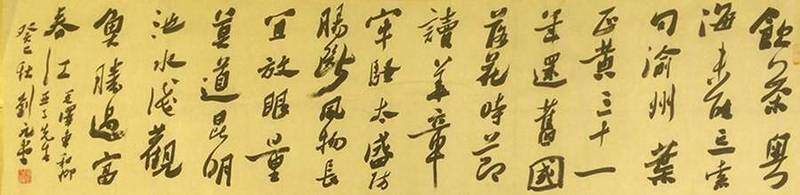 飲茶粵
海未能忘索
句渝州葉
正黃三十一
年還舊國
落花時節
讀華章
牢騷太盛防
腸斷風物長
宜放眼量
莫道昆明
池水淺觀
魚勝過富
春江 毛澤東和柳
亞子先生
癸巳秋 劉元